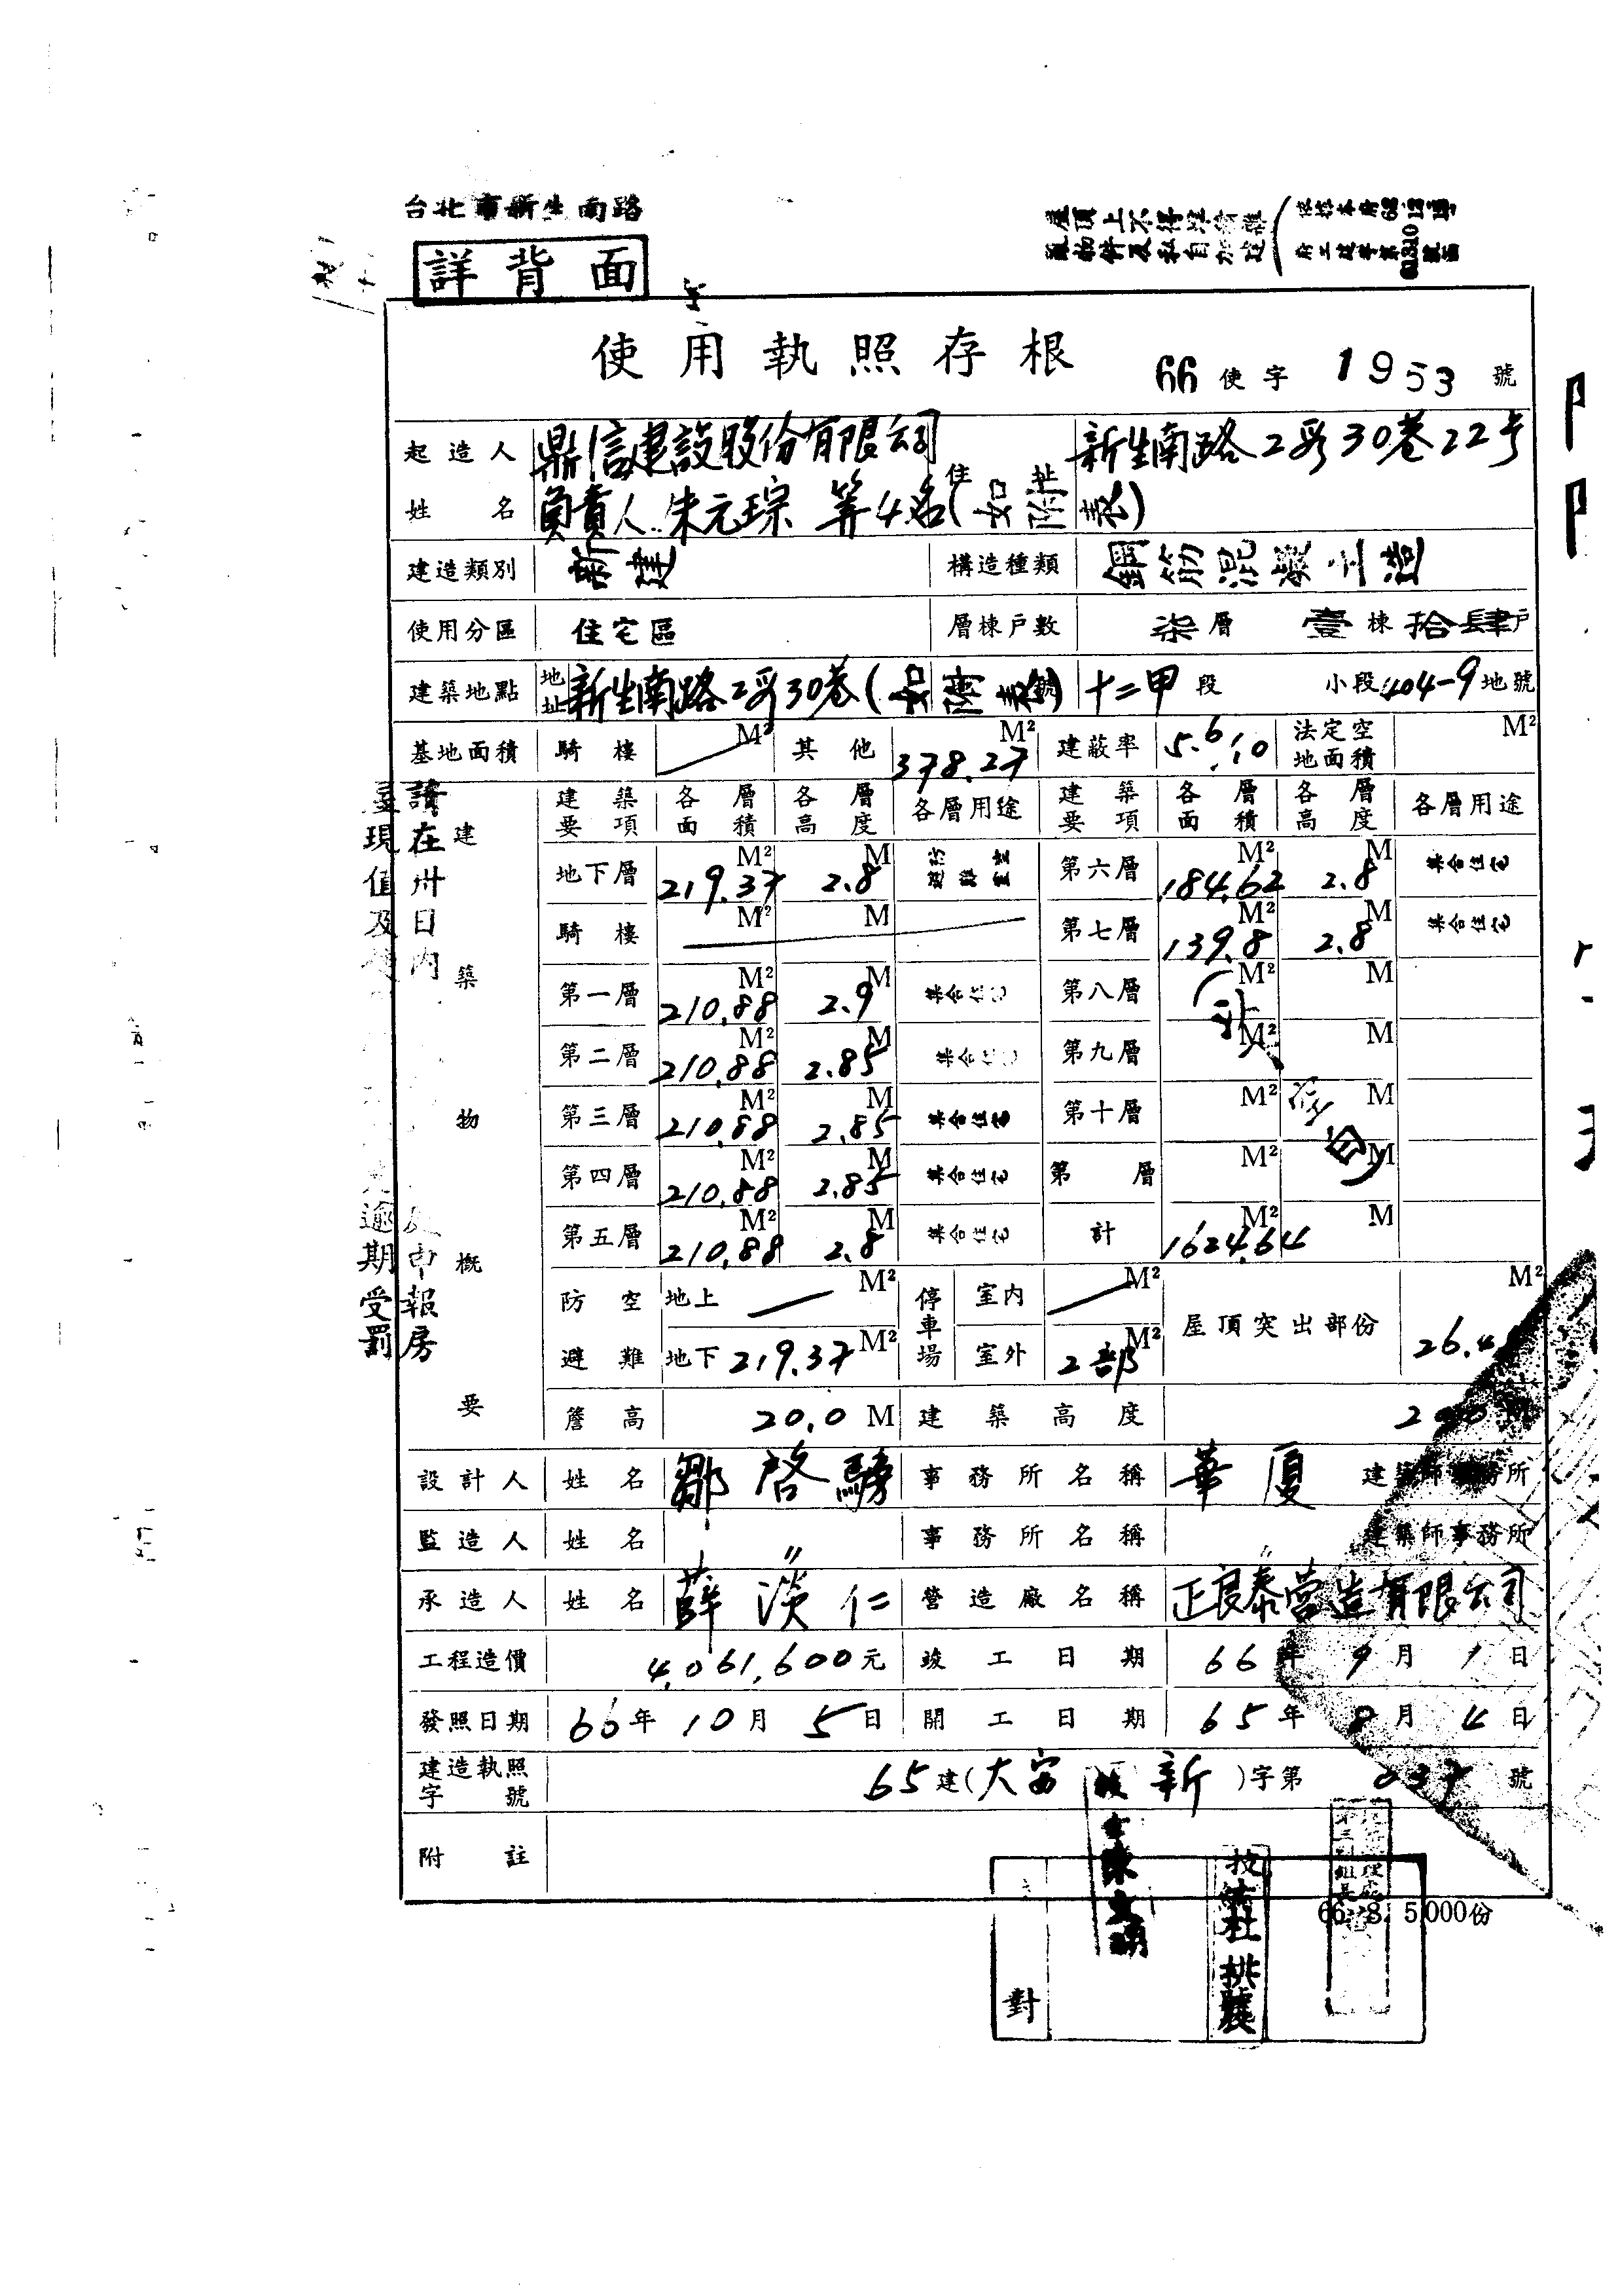 台北市新生南路
詳背面
屋頂上不得堆積雜
使用執照存根
66使字 1953 號
起造人姓名 鼎信建設股份有限公司 住址 新生南路2段30巷22号
負責人 朱元琮 等4名(如附表)
建造類別 新建 構造種類 鋼筋混凝土造
使用分區 住宅區 層棟戶數 柒層 壹棟 拾肆戶
建築地點 地址 新生南路2段30巷(如附表)號 十二甲段 小段404-9地號
基地面積 騎樓 M² 其他 378.27 M² 建蔽率 法定空地面積 M²
建築物概要
建築要項 各層面積 各層高度 各層用途 建築要項 各層面積 各層高度 各層用途
地下層 219.37 M² 2.8 M 第六層 184.62 M² 2.8 M 集合住宅
騎樓 M² M 第七層 139.8 M² 2.8 M 集合住宅
第一層 210.88 M² 2.9 M 集合住宅 第八層 M² M
第二層 210.88 M² 2.85 M 集合住宅 第九層 M² M
第三層 210.88 M² 2.85 M 集合住宅 第十層 M² M
第四層 210.88 M² 2.85 M 集合住宅 第 層 M² M
第五層 210.88 M² 2.8 M 集合住宅 計 1624.64 M² M
防空避難 地上 M² 停車場 室內 M² 屋頂突出部份 M²
地下 219.37 M² 室外 2部 M² 26.4
簷高 20.0 M 建築高度
設計人 姓名 鄒啓騳 事務所名稱 華廈 建築師事務所
監造人 姓名 〃 事務所名稱 〃 建築師事務所
承造人 姓名 薛淡仁 營造廠名稱 正良泰營造有限公司
工程造價 4,061,600元 竣工日期 66年9月1日
發照日期 66年10月5日 開工日期 65年8月4日
建造執照字號 65建(大安 新)字第 037 號
附註
66. 8. 5,000份
請在卅日內
現值及
申報房
逾期受罰
對